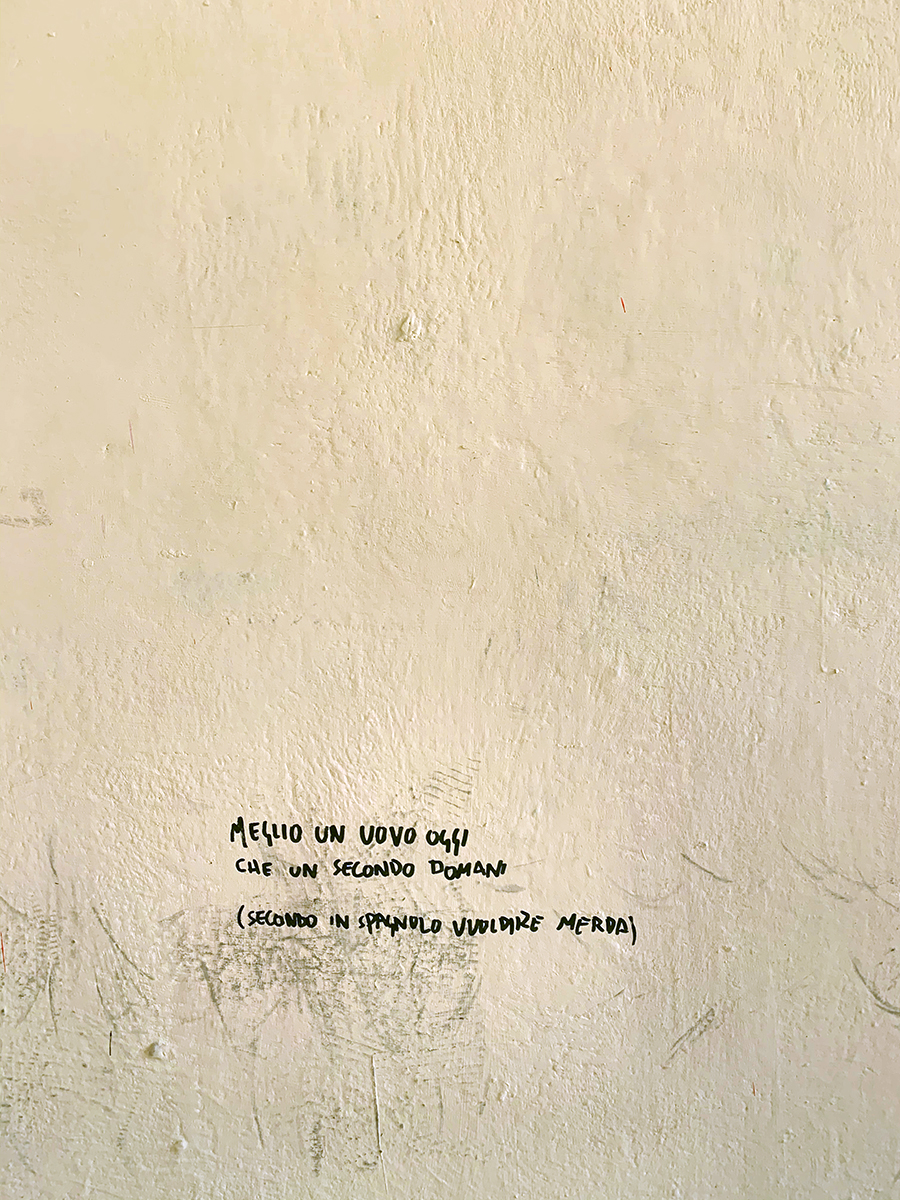 MEGLIO UN UOVO OGGI
CHE UN SECONDO DOMANI
(SECONDO IN SPAGNOLO VUOLDIRE MERDA)